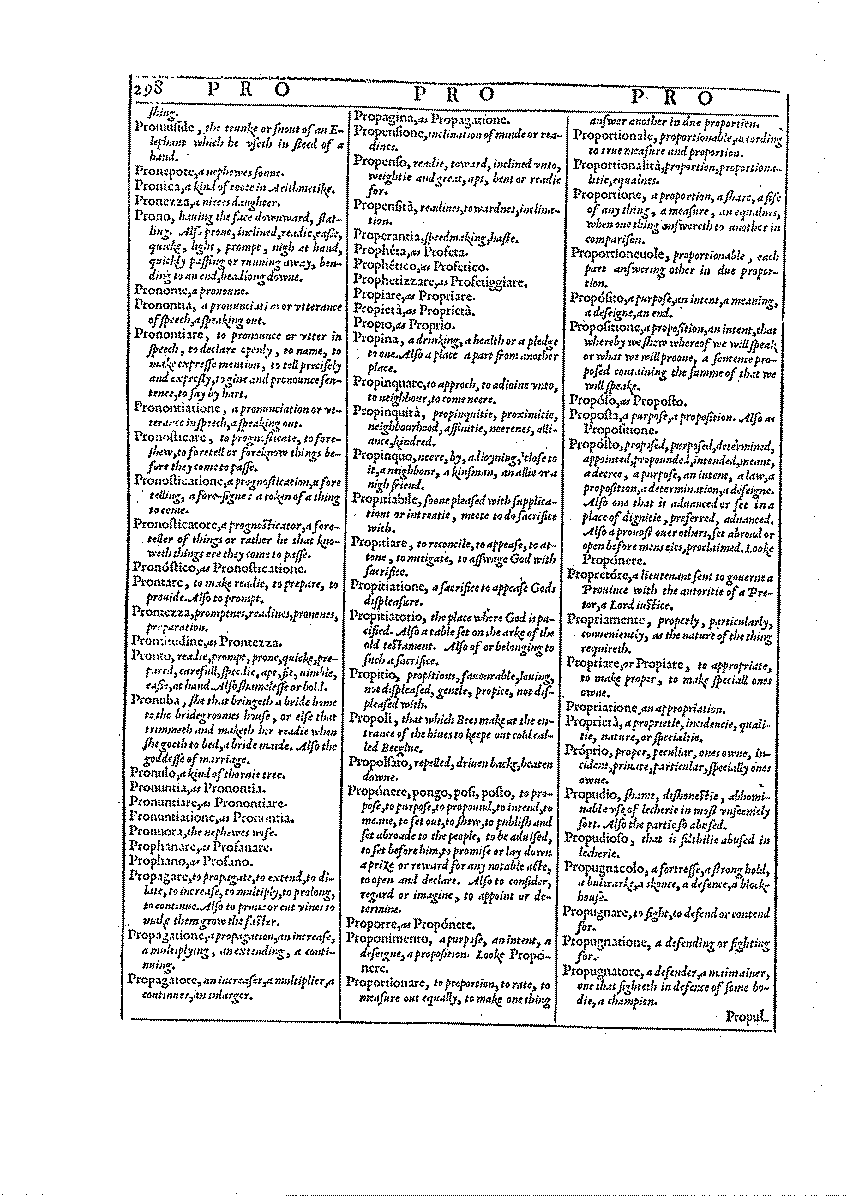 298 P R O P R O P R O
ſhing.
Promuſide, the trunke or ſnout of an E-
lephant which he vſeth in ſteed of a
hand.
Pronepote, a nephewes ſonne.
Pronica, a kind of roote in Arithmetike.
Pronezza, a nieces daughter.
Prono, hauing the face downward, flat-
ling. Alſo prone, inclined, readie, eaſie,
quicke, light, prompt, nigh at hand,
quickly paſſing or running away, ben-
ding to an end, headlong downe.
Pronome, a pronoune.
Pronontia, a pronunciation or vtterance
of ſpeech, a ſpeaking out.
Pronontiare, to pronounce or vtter in
ſpeech, to declare openly, to name, to
make expreſſe mention, to tell preciſely
and expreſly, to giue and pronounce ſen-
tence, to ſay by hart.
Pronontiatione, a pronunciation or vt-
terance in ſpeech, a ſpeaking out.
Pronoſticare, to prognoſticate, to fore-
ſhew, to foretell or foreknow things be-
fore they come to paſſe.
Pronoſticatione, a prognoſtication, a fore
telling, a fore-ſigne: a token of a thing
to come.
Pronoſticatore, a prognoſticator, a fore-
teller of things or rather he that kno-
weth things ere they come to paſſe.
Pronóſtico, as Pronoſticatione.
Prontare, to make readie, to prepare, to
prouide. Alſo to prompt.
Prontezza, promptnes, readines, pronenes,
preparation.
Prontitudine, as Prontezza.
Pronto, readie, prompt, prone, quicke, pre-
pared, carefull, ſpeedie, apt, fit, nimble,
eaſie, at hand. Alſo ſhameleſſe or bold.
Pronuba, ſhe that bringeth a bride home
to the bridegroomes houſe, or elſe that
trimmeth and maketh her readie when
ſhe goeth to bed, a bride maide. Alſo the
goddeſſe of marriage.
Pronulo, a kind of thornie tree.
Pronuntia, as Pronontia.
Pronuntiare, as Pronontiare.
Pronuntiatione, as Pronontia.
Pronuora, the nephewes wife.
Prophanare, as Profanare.
Prophano, as Profano.
Propagare, to propagate, to extend, to di-
late, to increaſe, to multiply, to prolong,
to continue. Alſo to prune or cut vines to
make them grow the faſter.
Propagatione, a propagation, an increaſe,
a multiplying, an extending, a conti-
nuing.
Propagatore, an increaſer, a multiplier, a
continuer, an enlarger.
Propagina, as Propagatione.
Propenſione, inclination of minde or rea-
dines.
Propenſo, readie, toward, inclined vnto,
weightie and great, apt, bent or readie
for.
Propenſità, readines, towardnes, inclina-
tion.
Properantia, ſpeedmaking, haſte.
Prophéta, as Profeta.
Prophético, as Profetico.
Prophetizzare, as Profetiggiare.
Propiare, as Propriare.
Propietà, as Proprietà.
Propio, as Proprio.
Propina, a drinking, a health or a pledge
to one. Alſo a place apart from another
place.
Propinquare, to approch, to adioine vnto,
to neighbour, to come neere.
Propinquità, propinquitie, proximitie,
neighbourhood, affinitie, neerenes, alli-
ance, kindred.
Propinquo, neere, by, adioyning, cloſe to
it, a neighbour, a kinſman, an allie or a
nigh friend.
Propitiabile, ſoone pleaſed with ſupplica-
tions or intreatie, meete to do ſacrifice
with.
Propitiare, to reconcile, to appeaſe, to at-
tone, to mitigate, to aſſwage God with
ſacrifice.
Propitiatione, a ſacrifice to appeaſe Gods
diſpleaſure.
Propitiatorio, the place where God is pa-
cified. Alſo a table ſet on the arke of the
old teſtament. Alſo of or belonging to
ſuch a ſacrifice.
Propitio, propitious, fauourable, louing,
not diſpleaſed, gentle, propice, not diſ-
pleaſed with.
Propoli, that which Bees make at the en-
trance of the hiues to keepe out cold cal-
led Beeglue.
Propolſato, repelled, driuen backe, beaten
downe.
Propónere, pongo, poſi, poſto, to pro-
poſe, to purpoſe, to propound, to intend, to
meane, to ſet out, to ſhew, to publiſh and
ſet abroade to the people, to be aduiſed,
to ſet before him, to promiſe or lay down
a prize or reward for any notable acte,
to open and declare. Alſo to conſider,
regard or imagine, to appoint or de-
termine.
Proporre, as Propónere.
Proponimento, a purpoſe, an intent, a
deſeigne, a propoſition. Looke Propó-
nere.
Proportionare, to proportion, to rate, to
meaſure out equally, to make one thing
anſwer another in due proportion.
Proportionale, proportionable, according
to true meaſure and proportion.
Proportionalità, proportion, proportiona-
litie, equaines.
Proportione, a proportion, a ſhare, a ſiſe
of any thing, a meaſure, an equalnes,
when one thing anſwereth to another in
compariſon.
Proportioneuole, proportionable, each
part anſwering other in due propor-
tion.
Propóſito, a purpoſe, an intent, a meaning,
a deſeigne, an end.
Propoſitione, a propoſition, an intent, that
whereby we ſhew whereof we will ſpeak
or what we will prooue, a ſentence pro-
poſed containing the ſumme of that we
will ſpeake.
Propóſo, as Propoſto.
Propoſta, a purpoſe, a propoſition. Alſo as
Propoſitione.
Propóſto, propoſed, purpoſed, determined,
appointed, propounded, intended, meant,
a decree, a purpoſe, an intent, a law, a
propoſition, a determination, a deſeigne.
Alſo one that is aduanced or ſet in a
place of dignitie, preferred, aduanced.
Alſo a prouoſt ouer others, ſet abroad or
open before mens eies, proclaimed. Looke
Propónere.
Propretóre, a lieutenant ſent to gouerne a
Prouince with the autoritie of a Pre-
tor, a Lord iuſtice.
Propriamente, properly, particularly,
conueniently, as the nature of the thing
requireth.
Propriare, or Propiare, to appropriate,
to make proper, to make ſpeciall ones
owne.
Propriatione, an appropriation.
Proprietà, a proprietie, incidencie, quali-
tie, nature, or ſpecialtie.
Próprio, proper, peculiar, ones owne, in-
cident, priuate, particular, ſpecially ones
owne.
Propudio, ſhame, diſhoneſtie, abhomi-
nable vſe of lecherie in moſt vnſeemely
ſort. Alſo the partie ſo abuſed.
Propudioſo, that is filthilie abuſed in
lecherie.
Propugnacolo, a fortreſſe, a ſtrong hold,
a bulwarke, a skonce, a defence, a blocke
houſe.
Propugnare, to fight, to defend or contend
for.
Propugnatione, a defending or fighting
for.
Propugnatore, a defender, a maintainer,
one that fighteth in defence of ſome bo-
die, a champion.
Propul-